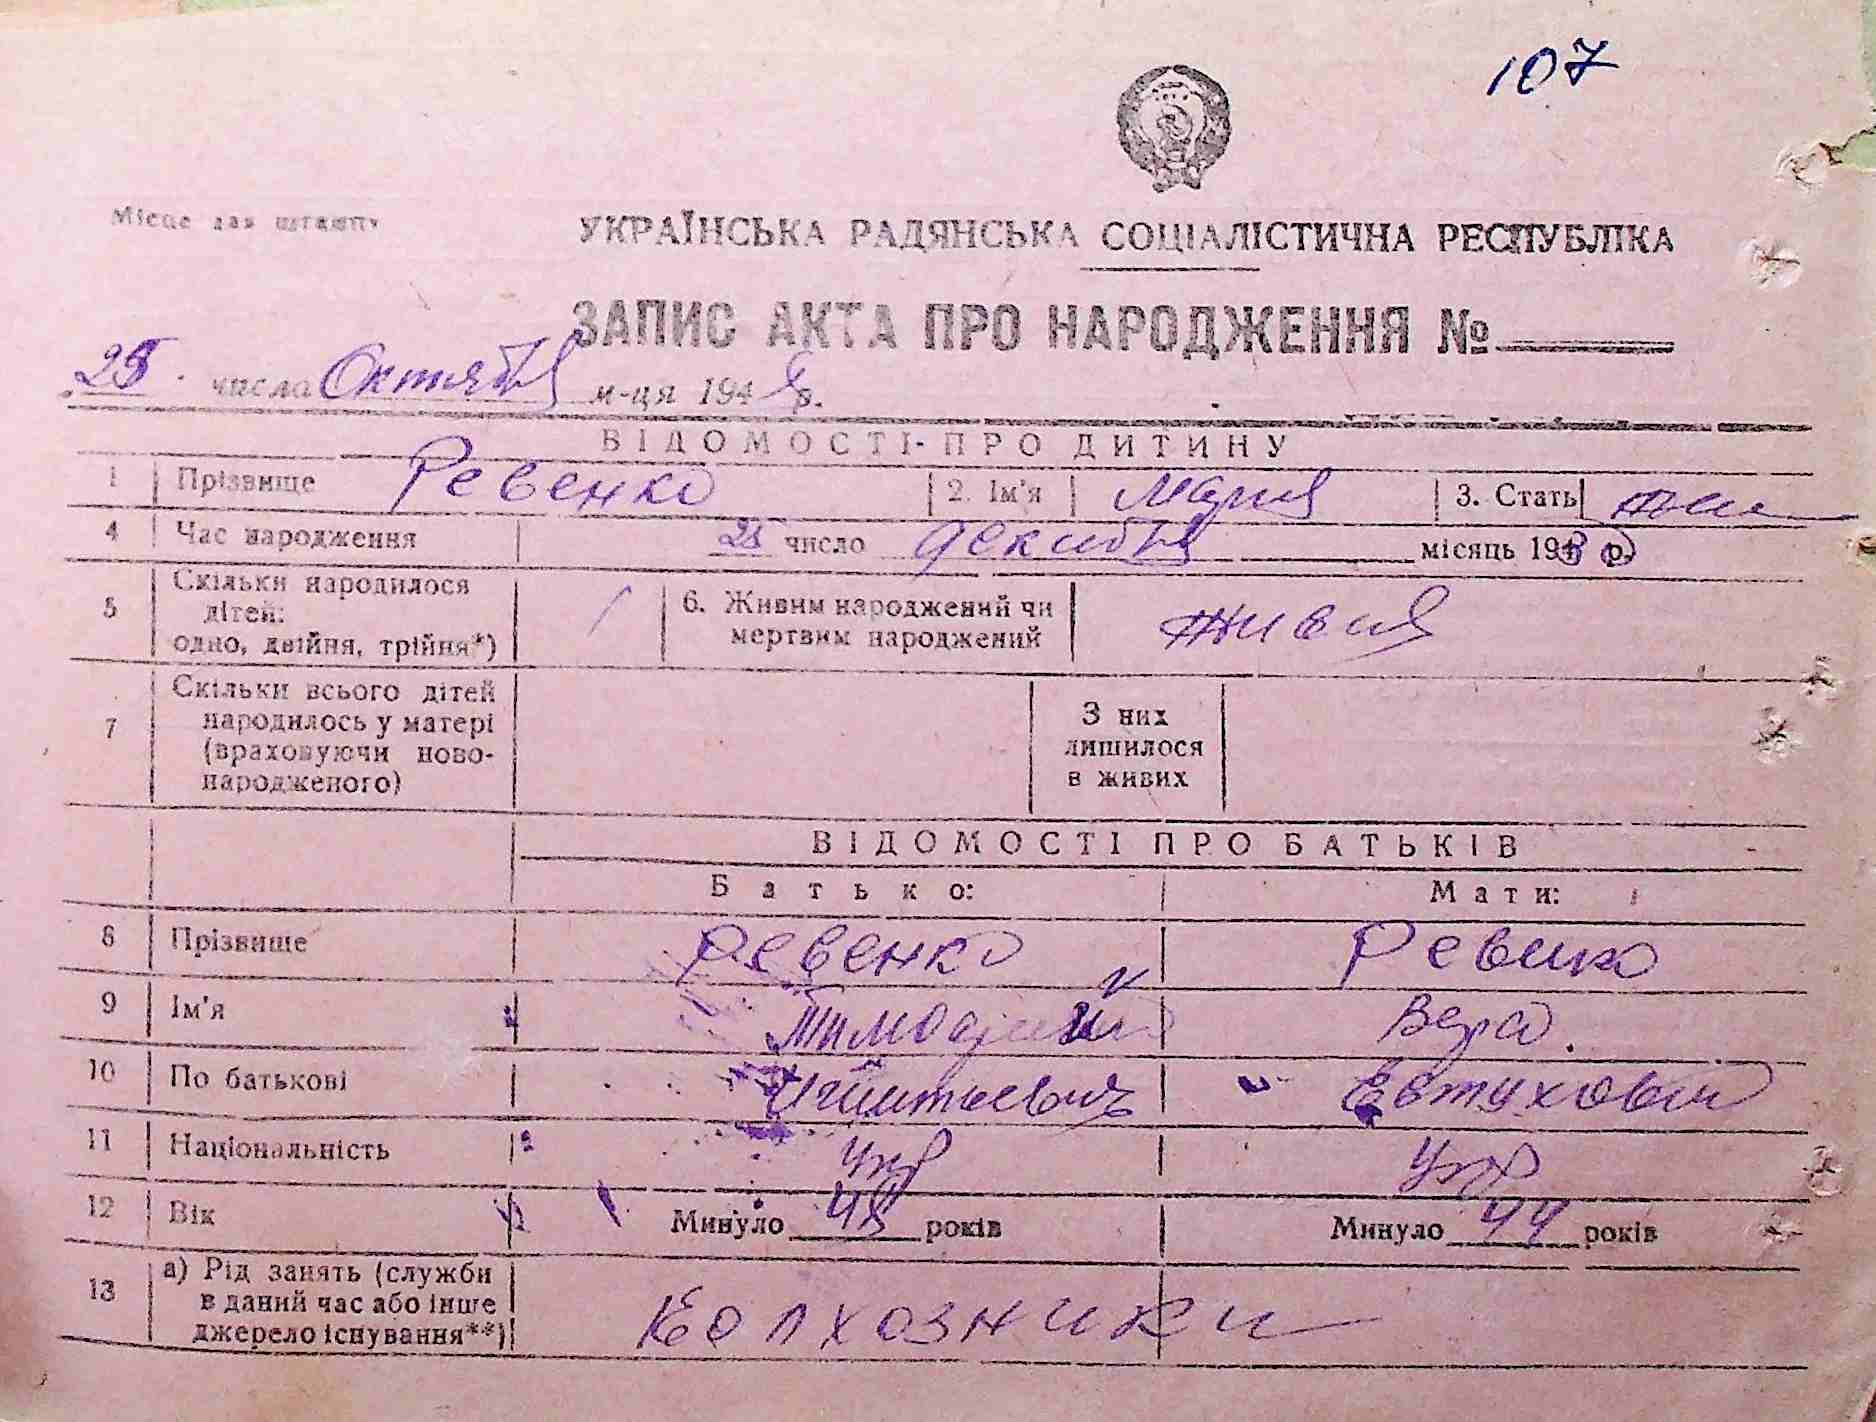 107
Місце для штампу
УКРАЇНСЬКА РАДЯНСЬКА СОЦІАЛІСТИЧНА РЕСПУБЛІКА
ЗАПИС АКТА ПРО НАРОДЖЕННЯ №
25 числа Октября м-ця 194 р.
ВІДОМОСТІ ПРО ДИТИНУ
1 Прізвище Ревенко 2. Ім'я Мария 3. Стать жен
4 Час народження 25 число декабря місяць 193 р.
5 Скільки народилося дітей: одно, двійня, трійня*) 1 6. Живим народжений чи мертвим народжений живая
7 Скільки всього дітей народилось у матері (враховуючи ново-народженого) З них лишилося в живих
ВІДОМОСТІ ПРО БАТЬКІВ
Батько: Мати:
8 Прізвище Ревенко Ревенко
9 Ім'я Тимофей Вера
10 По батькові Игнатьевич Евтуховна
11 Національність укр укр
12 Вік Минуло 48 років Минуло 44 років
13 а) Рід занять (служби в даний час або інше джерело існування**) Колхозники